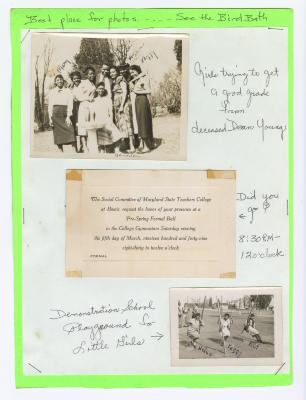 Best place for photos..... See the Bird Bath
Girls trying to get
a good grade
from
deceased Dean Young
The Social Committee of Maryland State Teachers College
at Bowie request the honor of your presence at a
Pre-Spring Formal Ball
in the College Gymnasium Saturday evening
the fifth day of March, nineteen hundred and forty-nine
eight-thirty to twelve o'clock
FORMAL
Did you
go?
8:30PM-
12o'clock
Demonstration School
Playground for
Little Girls